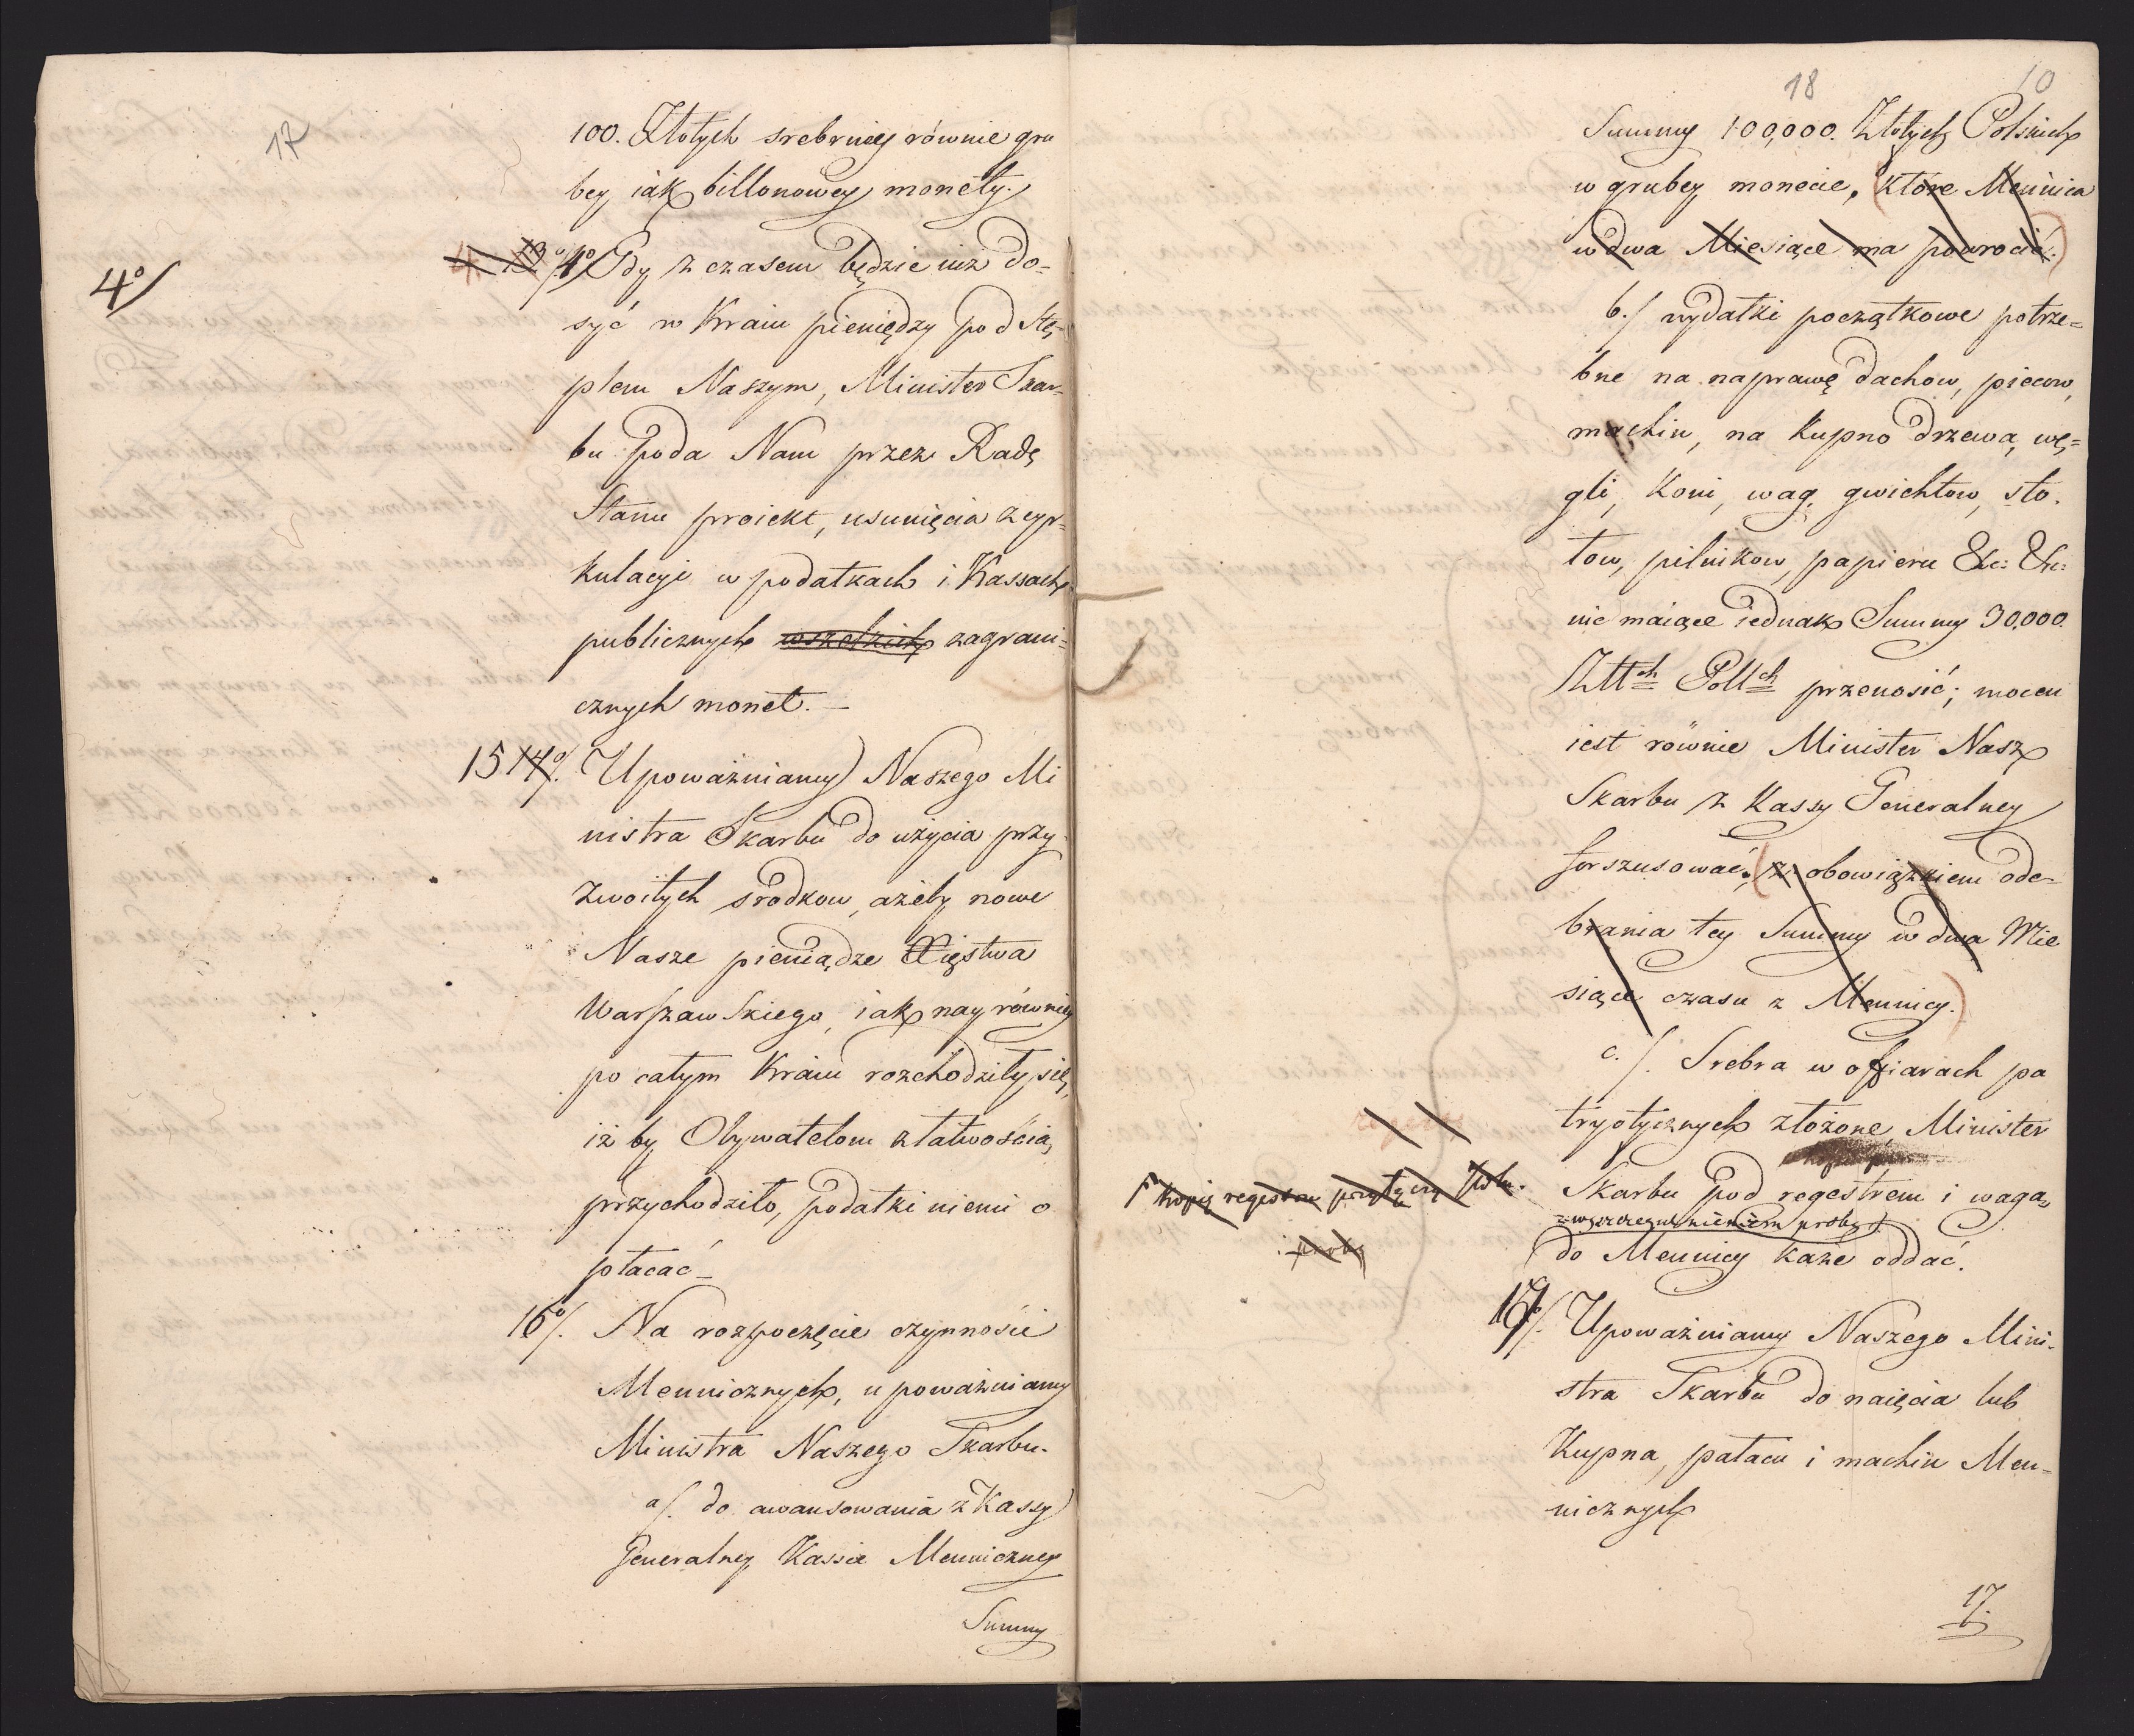 17
100. Złotych srebrney równie gru
bey iak billonowey monety.
4º/
13º/. Gdy z czasem będzie iuż do=
syć w Kraiu pieniędzy pod Stę=
plem Naszym, Minister Skar=
bu poda Nam przez Radę
Stanu proiekt, usunięcia z cyr=
kulacyi w podatkach i Kassach
publicznych wszelkich zagrani=
cznych monet. —
15 14º/. Upoważniamy Naszego Mi
nistra Skarbu do użycia przy
zwoitych srodkow, ażeby nowe
Nasze pieniądze Xięstwa
Warszawskiego, iak nayrówniey
po całym Kraiu rozchodziły się,
iż by Obywatelom z łatwością
przychodziło, podatki niemi o
płacać —
16º/. Na rozpoczęcie czynności
Menniczych, upoważniamy
Ministra Naszego Skarbu.
a/. do awansowania z Kassy
Generalney Kassie Menniczney
Summy
18
10
Summy 100,000. Złotych Polskich
w grubey monecie, które Mennica
w dwa Miesiące ma powrocić.
b./ wydatki początkowe potrze=
bne na naprawę dachow, piecow,
machin, na kupno drzewa, wę=
gli, koni, wag, gwichtow, sto.
łow, pilnikow, papieru &c: &c:
nie maiące iednak Summy 30,000.
Złłch Pollch przenosić; mocen
iest równie Minister Nasz
Skarbu z Kassy Generalney
forszusować, z obowiązkiem ode=
brania tey Summy w dwa Mie
siące czasu z Mennicy.
c./. Srebra w ofiarach pa
tryotycznych złożone, Minister
kopię regestru przyłączy
i proby
Skarbu pod regestrem i wagą,
z wyszczegulnieniem proby
do Mennicy każe oddać.
17/. Upoważniamy Naszego Mini=
stra Skarbu do naięcia lub
Kupna, pałacu i machin Men=
nicznych
17.